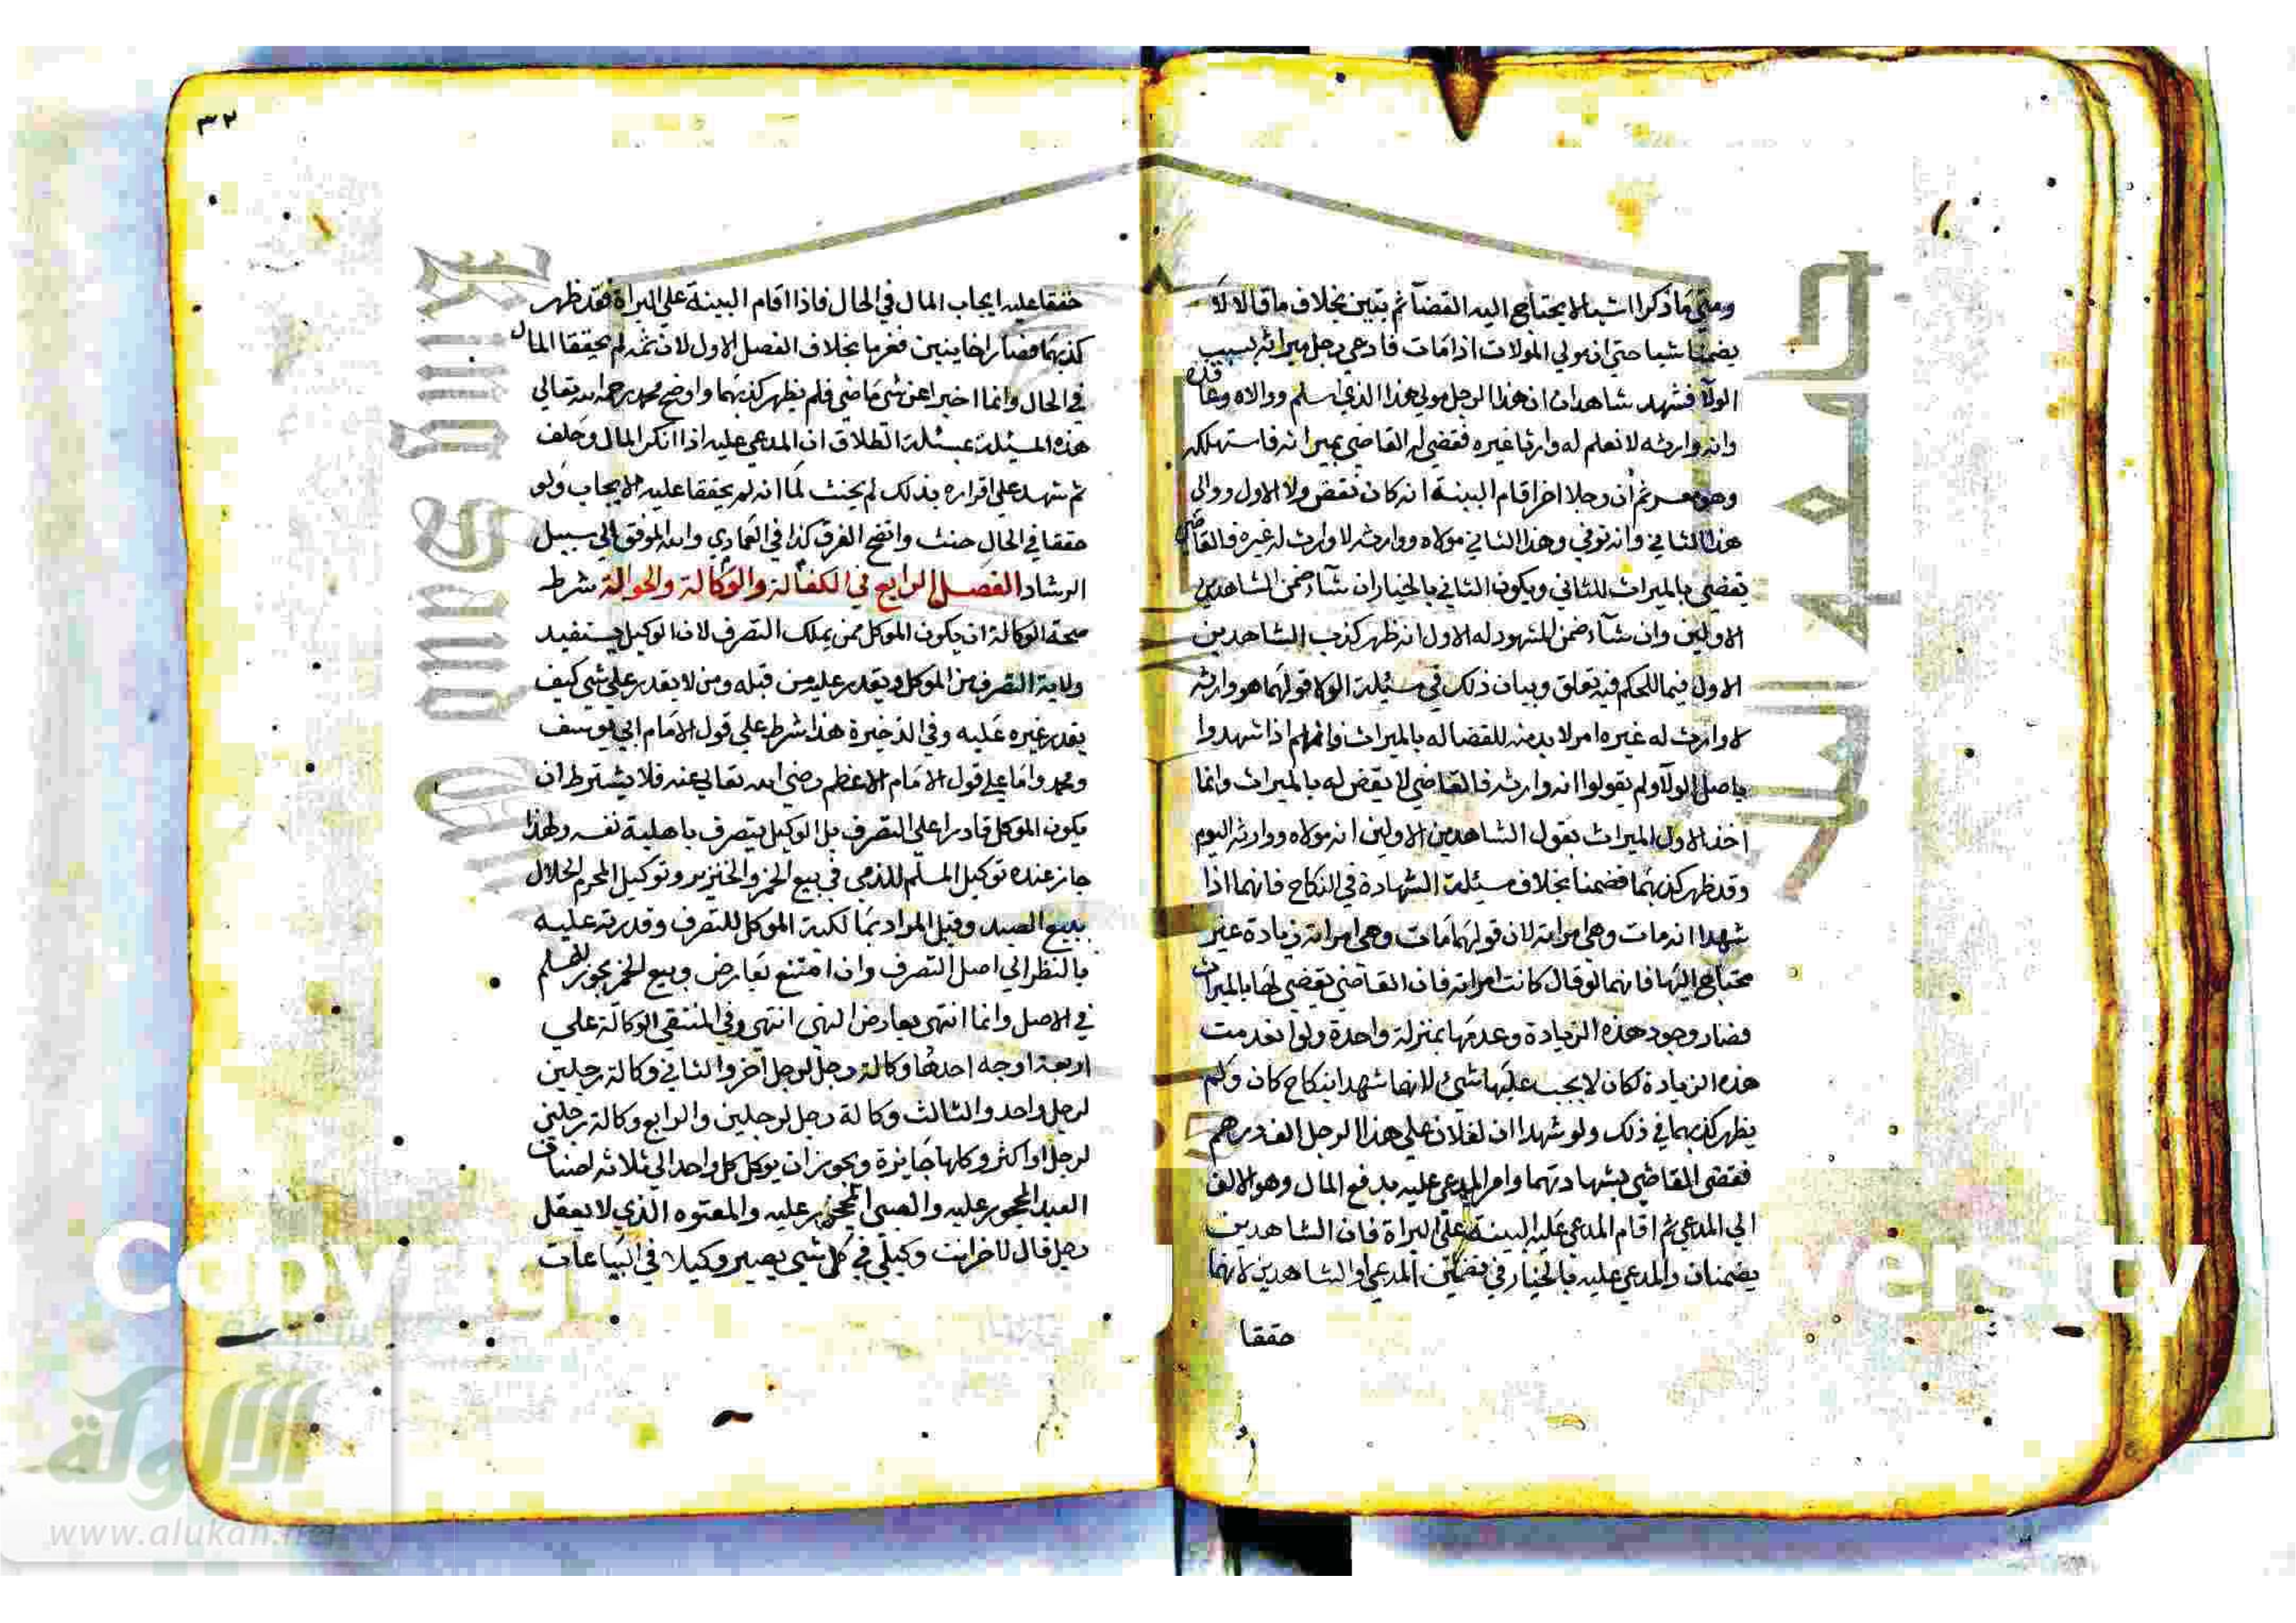 ومتى ما ذكرا شيا لا يحتاج اليه القضآ ثم تبين بخلاف ما قالا لا
يضمنا شيا حتى ان مولي المولات اذا مات فادعي رجل ميراثه بسبب
الولآ فشهد شاهدان ان هذا الرجل مولي هذا الذي اسلم ووالاه وعاقده
وانه وارثه لا نعلم له وارثا غيره فقضي له القاضي بميراثه فاستهلكه
وهو معسر ثم ان رجلا اخر اقام البينة انه كان نقض ولا الاول ووالي
هذا الثاني وانه توفي وهذا الثاني مولاه ووارثه لا وارث له غيره فالقاضي
يقضي بالميراث للثاني ويكون الثاني بالخيار ان شآء ضمن الشاهدين
الاولين وان شآء ضمن المشهود له الاول انه ظهر كذب الشاهدين
الاول فيما للحكم فيه تعلق وبيان ذلك في مسئلة الولا قولهما هو وارثه
لا وارث له غيره امر لا بد منه للقضا له بالميراث فانهم اذا شهدوا
باصل الولآ ولم يقولوا انه وارثه فالقاضي لا يقض له بالميراث وانما
اخذ الاول الميراث بقول الشاهدين الاولين انه مولاه ووارثه اليوم
وقد ظهر كذبهما فضمنا بخلاف مسئلة الشهادة في النكاح فانهما اذا
شهدا انه مات وهي امراته لان قولهما مات وهي امراته زيادة غير
محتاج اليها فانهما لو قال كانت امراته فان القاضي يقضي لها بالميراث
فصار وجود هذه الزيادة وعدمها بمنزلة واحدة ولو انعدمت
هذه الزيادة لكان لا يجب عليها شيئ لانهما شهدا بنكاح كان ولم
يظهر كذبهما في ذلك ولو شهدا ان لفلان علي هذا الرجل الف درهم
فقضي القاضي بشهادتهما وامر المدعي عليه بدفع المال وهو الالف
الي المدعي ثم اقام المدعي عليه البينة على البراة فان الشاهدين
يضمنان والمدعي عليه بالخيار في تضمين المدعي او الشاهدين لانهما
حققا
٣٢
حققا عليه ايجاب المال في الحال فاذا اقام البينة علي البراة فقد ظهر
كذبهما فصارا خاينين فغرما بخلاف الفصل الاول لان ثمه لم يحققا المال
في الحال وانما اخبرا عن شي ماضي فلم يظهر كذبهما واوضح محمد رحمه الله تعالي
هذه المسئلة بمسئلة الطلاق ان المدعي عليه اذا انكر المال وحلف
ثم شهد علي اقراره بذلك لم يحنث لما انه لم يحققا عليه الايجاب ولو
حققا في الحال حنث واتضح الفرق كذا في العمادي والله الموفق الي سبيل
الرشاد الفصل الرابع في الكفالة والوكالة والحوالة شرط
صحة الوكالة ان يكون الموكل ممن يملك التصرف لان الوكيل يستفيد
ولاية التصرف من الموكل ويقدر عليه من قبله ومن لا يقدر علي شي كيف
يقدر غيره عليه وفي الذخيرة هذا شرط علي قول الامام ابي يوسف
ومحمد واما علي قول الامام الاعظم رضي الله تعالي عنه فلا يشترط ان
يكون الموكل قادرا علي التصرف بل الوكيل يتصرف باهلية نفسه ولهذا
جاز عنده توكيل المسلم للذمي في بيع الخمر والخنزير وتوكيل المحرم الحلال
ببيع الصيد وقيل المراد بمالكية الموكل للتصرف وقدرته عليه
بالنظر الي اصل التصرف وان امتنع بعارض وبيع الخمر يجوز للمسلم
في الاصل وانما انتهي بعارض النهي انتهي وفي المنتقي الوكالة علي
اربعة اوجه احدها وكالة رجل لرجل اخر والثاني وكالة رجلين
لرجل واحد والثالث وكالة رجل لرجلين والرابع وكالة رجلين
لرجل او اكثر وكلها جايزة ويجوز ان يوكل كل واحد الي ثلاثه اصناف
العبد المحجور عليه والصبي المحجور عليه والمعتوه الذي لا يعقل
رجل قال لاخر انت وكيلي في كل شي يصير وكيلا في البياعات
الألوكة
www.alukah.net